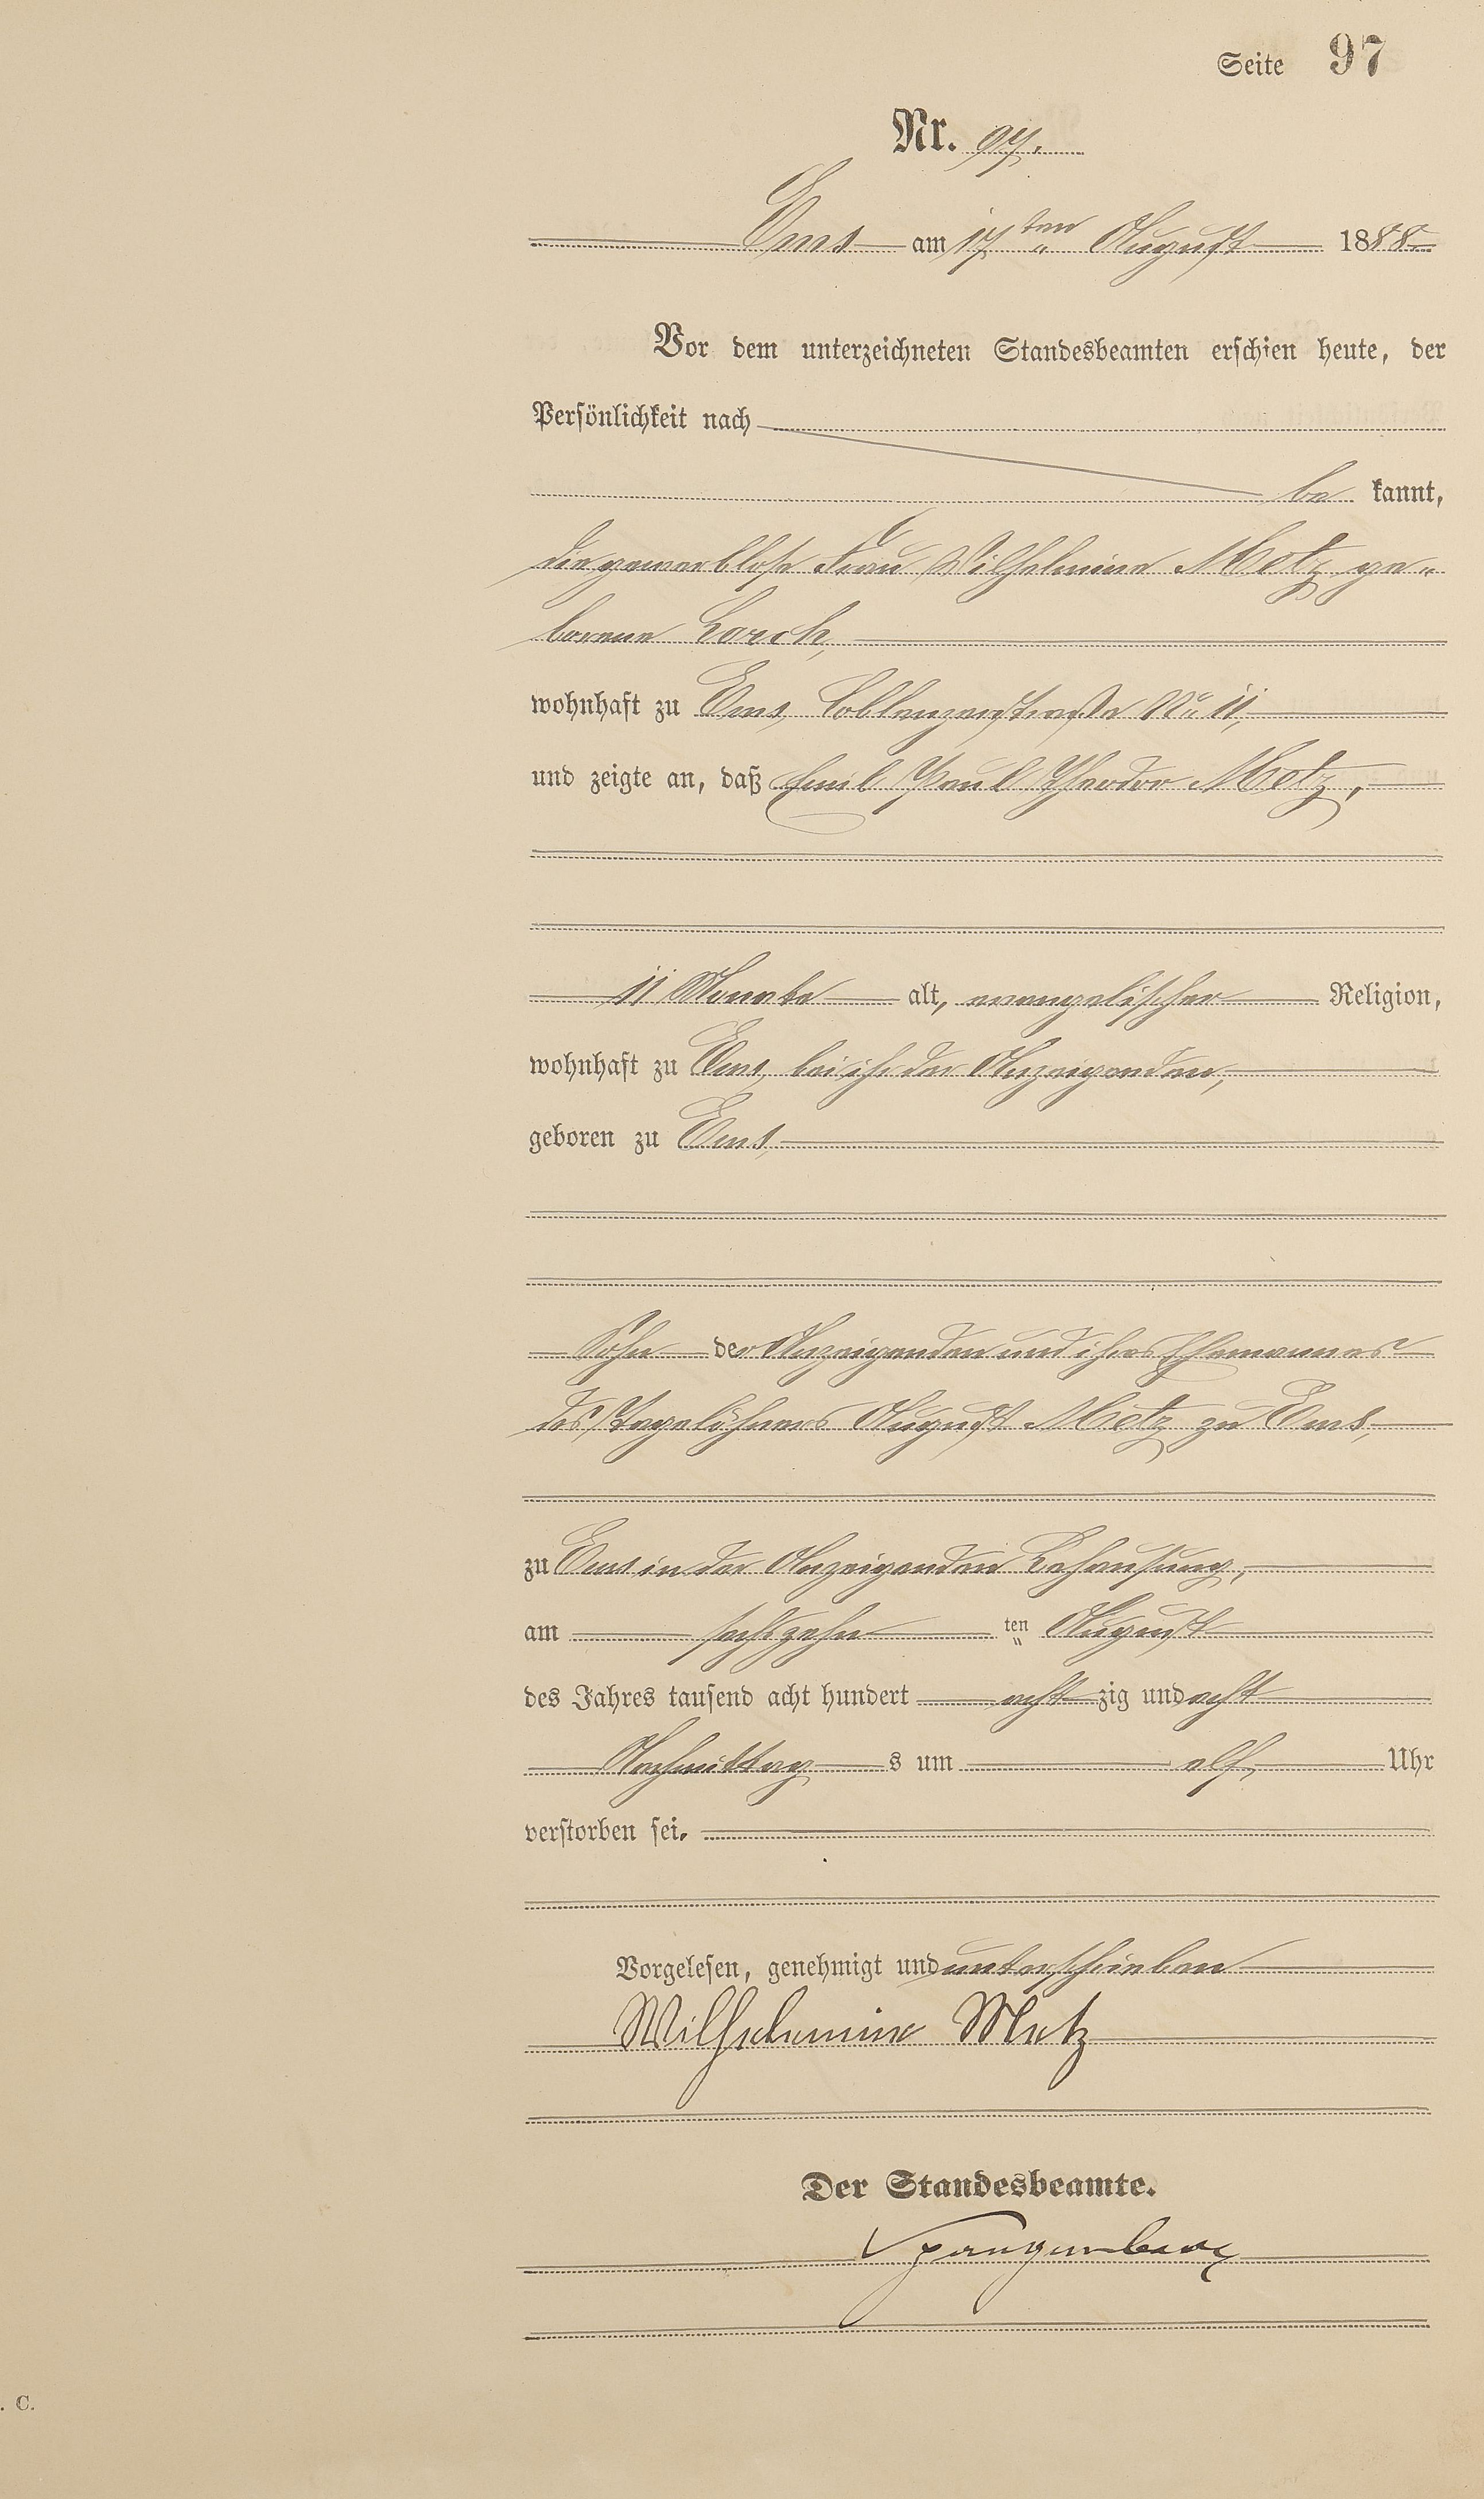 Seite 97
Nr. 97.
Ems am 17ten August 1888
Vor dem unterzeichneten Standesbeamten erschien heute, der
Persönlichkeit nach
be kannt,
die gewerblose Frau Wilhelmine Metz ge-
borene Lorch,
wohnhaft zu Ems, Coblenzerstraße No 11,
und zeigte an, daß Emil Paul Theodor Metz,
11 Monate alt, evangelischer Religion,
wohnhaft zu Ems, bei ihr der Anzeigenden,
geboren zu Ems,
Sohn der Anzeigenden und ihres Ehemannes
des Tagelöhners August Metz zu Ems,
zu Ems in der Anzeigenden Behausung,
am sechszehn ten August
des Jahres tausend acht hundert acht zig und acht
Nachmittag s um elf Uhr
verstorben sei.
Vorgelesen, genehmigt und unterschrieben
Wilhelmine Metz
Der Standesbeamte.
Spangenberg
. C.